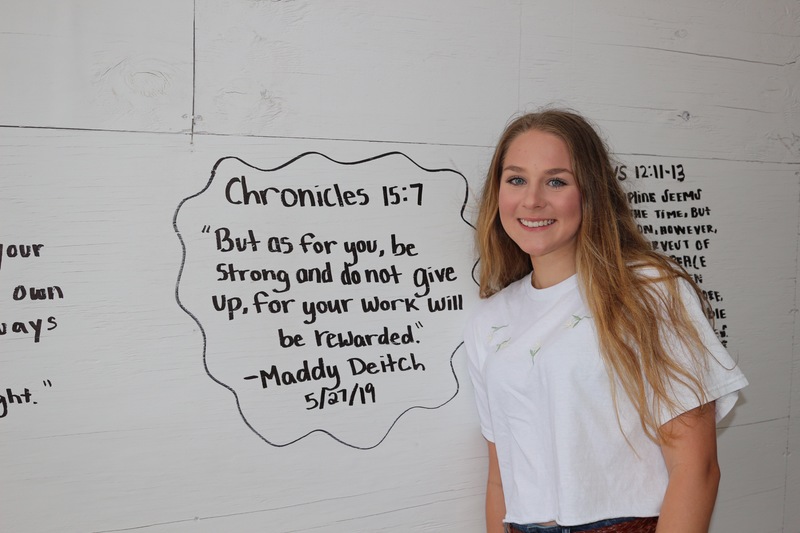 your
own
ways
ght."
Chronicles 15:7
"But as for you, be
Strong and do not give
up, for your work will
be rewarded."
-Maddy Deitch
5/27/19
WS 12:11-13
PLINE SEEMS
HE TIME, BUT
ON, HOWEVER,
RVEST OF
PEACE
EN